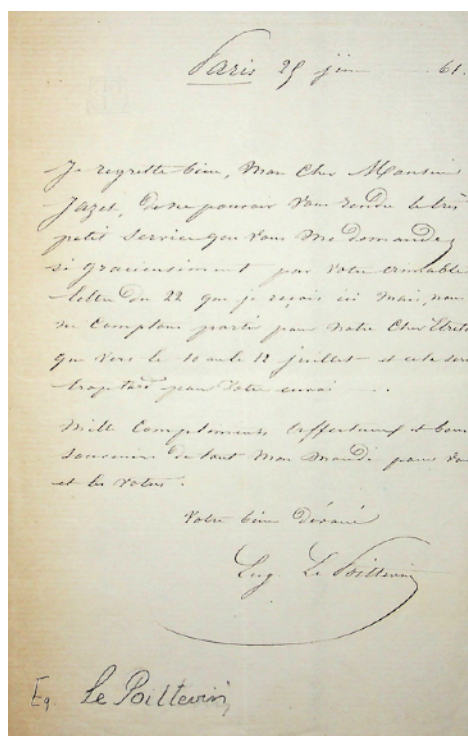 Paris 25 juin 61.
Je regrette bien, Mon Cher Monsieur
Jazet, de ne pouvoir vous rendre le très
petit service que vous me demandez
si gracieusement par votre aimable
lettre du 22 que je reçois ici mais, nous
ne comptons partir pour notre Cher Etretat
que vers le 10 ou le 12 juillet et cela sera
trop tard pour votre envoi
Mille Compliments affectueux et bons
souvenirs de tout mon monde pour vous
et les votres.
Votre bien dévoué
Eug. Le Poittevin
Eg. Le Poittevin